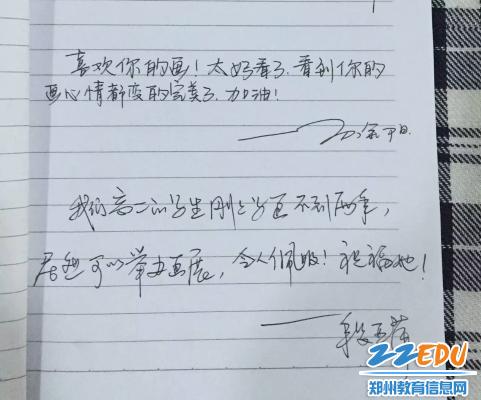 喜欢你的画！太好看了，看到你的
画心情都变的完美了，加油！
我们高二的学生刚刚学画不到两年，
居然可以举办画展，令人佩服！祝福她！
——
ZZEDU
郑州教育信息网